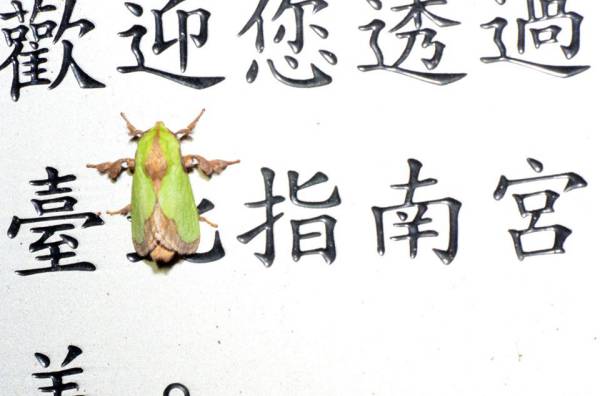 歡迎您透過
臺北指南宮
美。